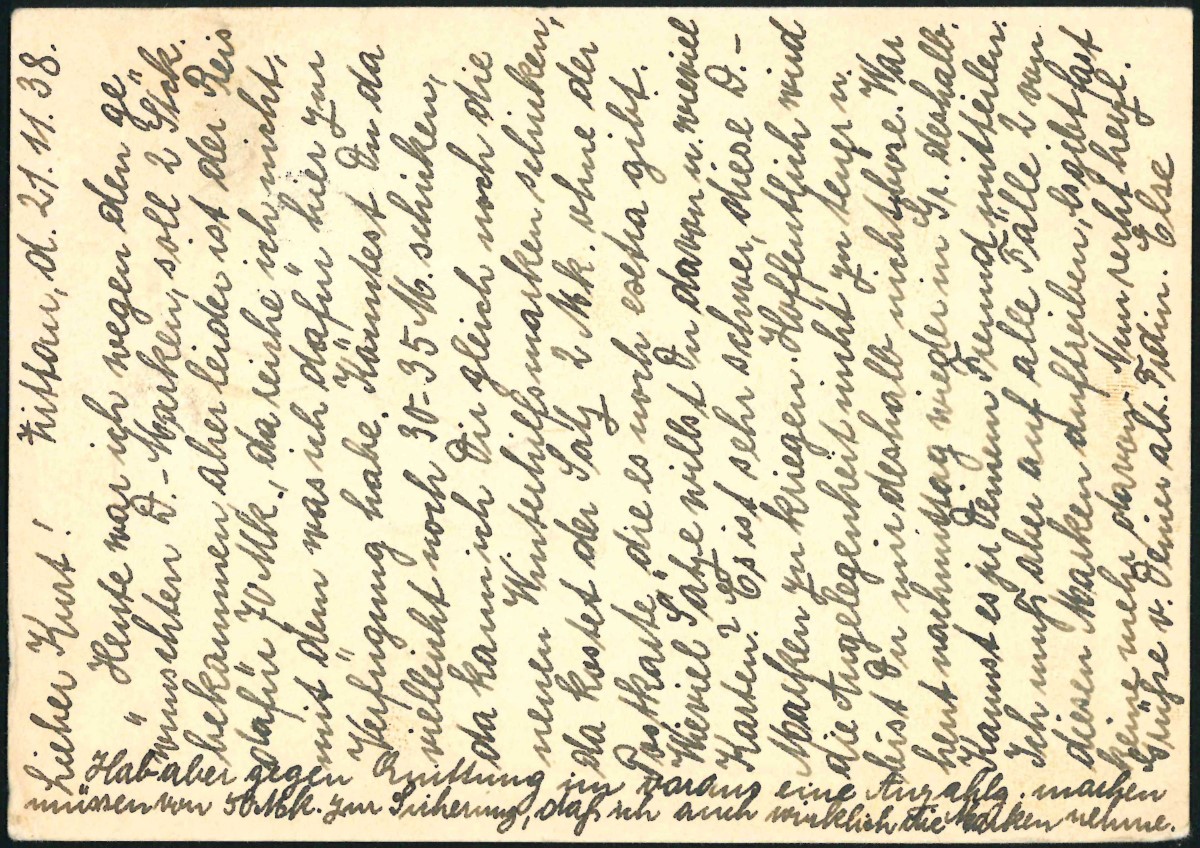 Zittau, d. 21.11.38.
Lieber Kurt!
Heute war ich wegen den ge-
wünschten D.-Marken, soll 2 Stck.
bekommen aber leider ist der Preis
dafür 70 Mk., da reiche ich nicht,
mit dem was ich dafür hier zur
Verfügung habe. Könntest Du da
vielleicht noch 30-35 M. schicken,
da kann ich Dir gleich noch die
neuen Winterhilfsmarken schicken,
da kostet der Satz 2 Mk. ohne der
Postkarte, die es noch extra gibt.
Wieviel Sätze willst Du davon u. wieviel
Karten? Es ist sehr schwer, diese D.-
Marken zu kriegen. Hoffentlich wird
die Angelegenheit nicht zu teuer u.
bist Du mir deshalb nicht böse. War
heut nachmittag wieder in Gr. deshalb.
Kannst es ja Deinem Freund mitteilen.
Ich muß aber auf alle Fälle 2 von
diesen Marken auftreiben, es gibt fast
keine mehr davon. Nun recht herzl.
Grüße v. Deiner alt. Frdin. Else
Hab aber gegen Quittung im voraus eine Anzahlg. machen
müssen von 50 Mk. zur Sicherung, daß ich auch wirklich die Marken nehme.